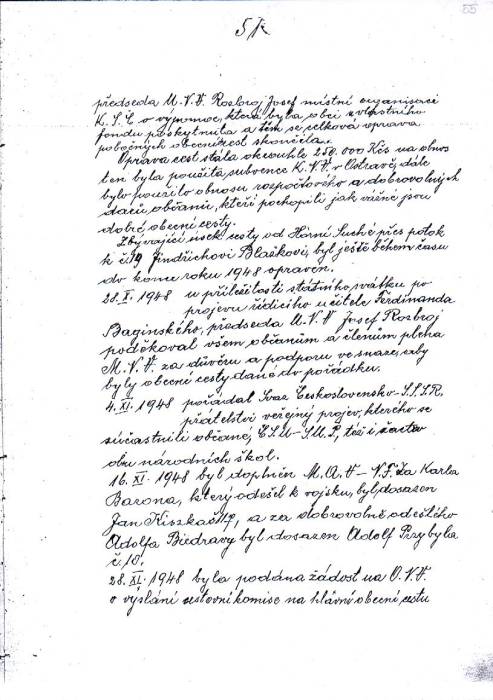 55
51
předseda M.N.V. Rozbroj Josef místní organisaci
K.S.Č. o výpomoc, která byla obci z vlastního
fondu poskytnuta a tím se celková oprava
pobočných obecních cest skončila.
Oprava cest stála okrouhle 250.000 Kčs na obnos
ten byla použita subvence K.N.V. v Ostravě, dále
bylo použito obnosu rozpočtového a dobrovolných
darů občanů, kteří pochopili jak vážné jsou
dobré obecní cesty.
Zbývající úsek cesty od Horní Suché přes potok
k č. 19 Jindřichovi Blaškovi, byl ještě během času
do konce roku 1948 opraven.
28.X. 1948 u příležitosti státního svátku po
projevu řídícího učitele Ferdinanda
Baginského, předseda M.N.V. Josef Rozbroj
poděkoval všem občanům a členům plena
M.N.V. za důvěru a podporu ve snaze, aby
byly obecní cesty dané do pořádku.
4.XI. 1948 pořádal Svaz Československo-S.S.S.R.
přátelství veřejný projev, kterého se
súčastnili občané, Č.S.M-S.M.P, též i žactvo
obu národních škol.
16.XI. 1948 byl doplněn M.A.V-N.F. Za Karla
Barona, který odešel k vojsku, byl dosazen
Jan Kiszka, a za dobrovolně odešlého
Adolfa Biedravy byl dosazen Adolf Przybyla
č. 10.
28.XI. 1948 byla podána žádost na O.N.V.
o vyslání cestovní komise na hlavní obecní cestu